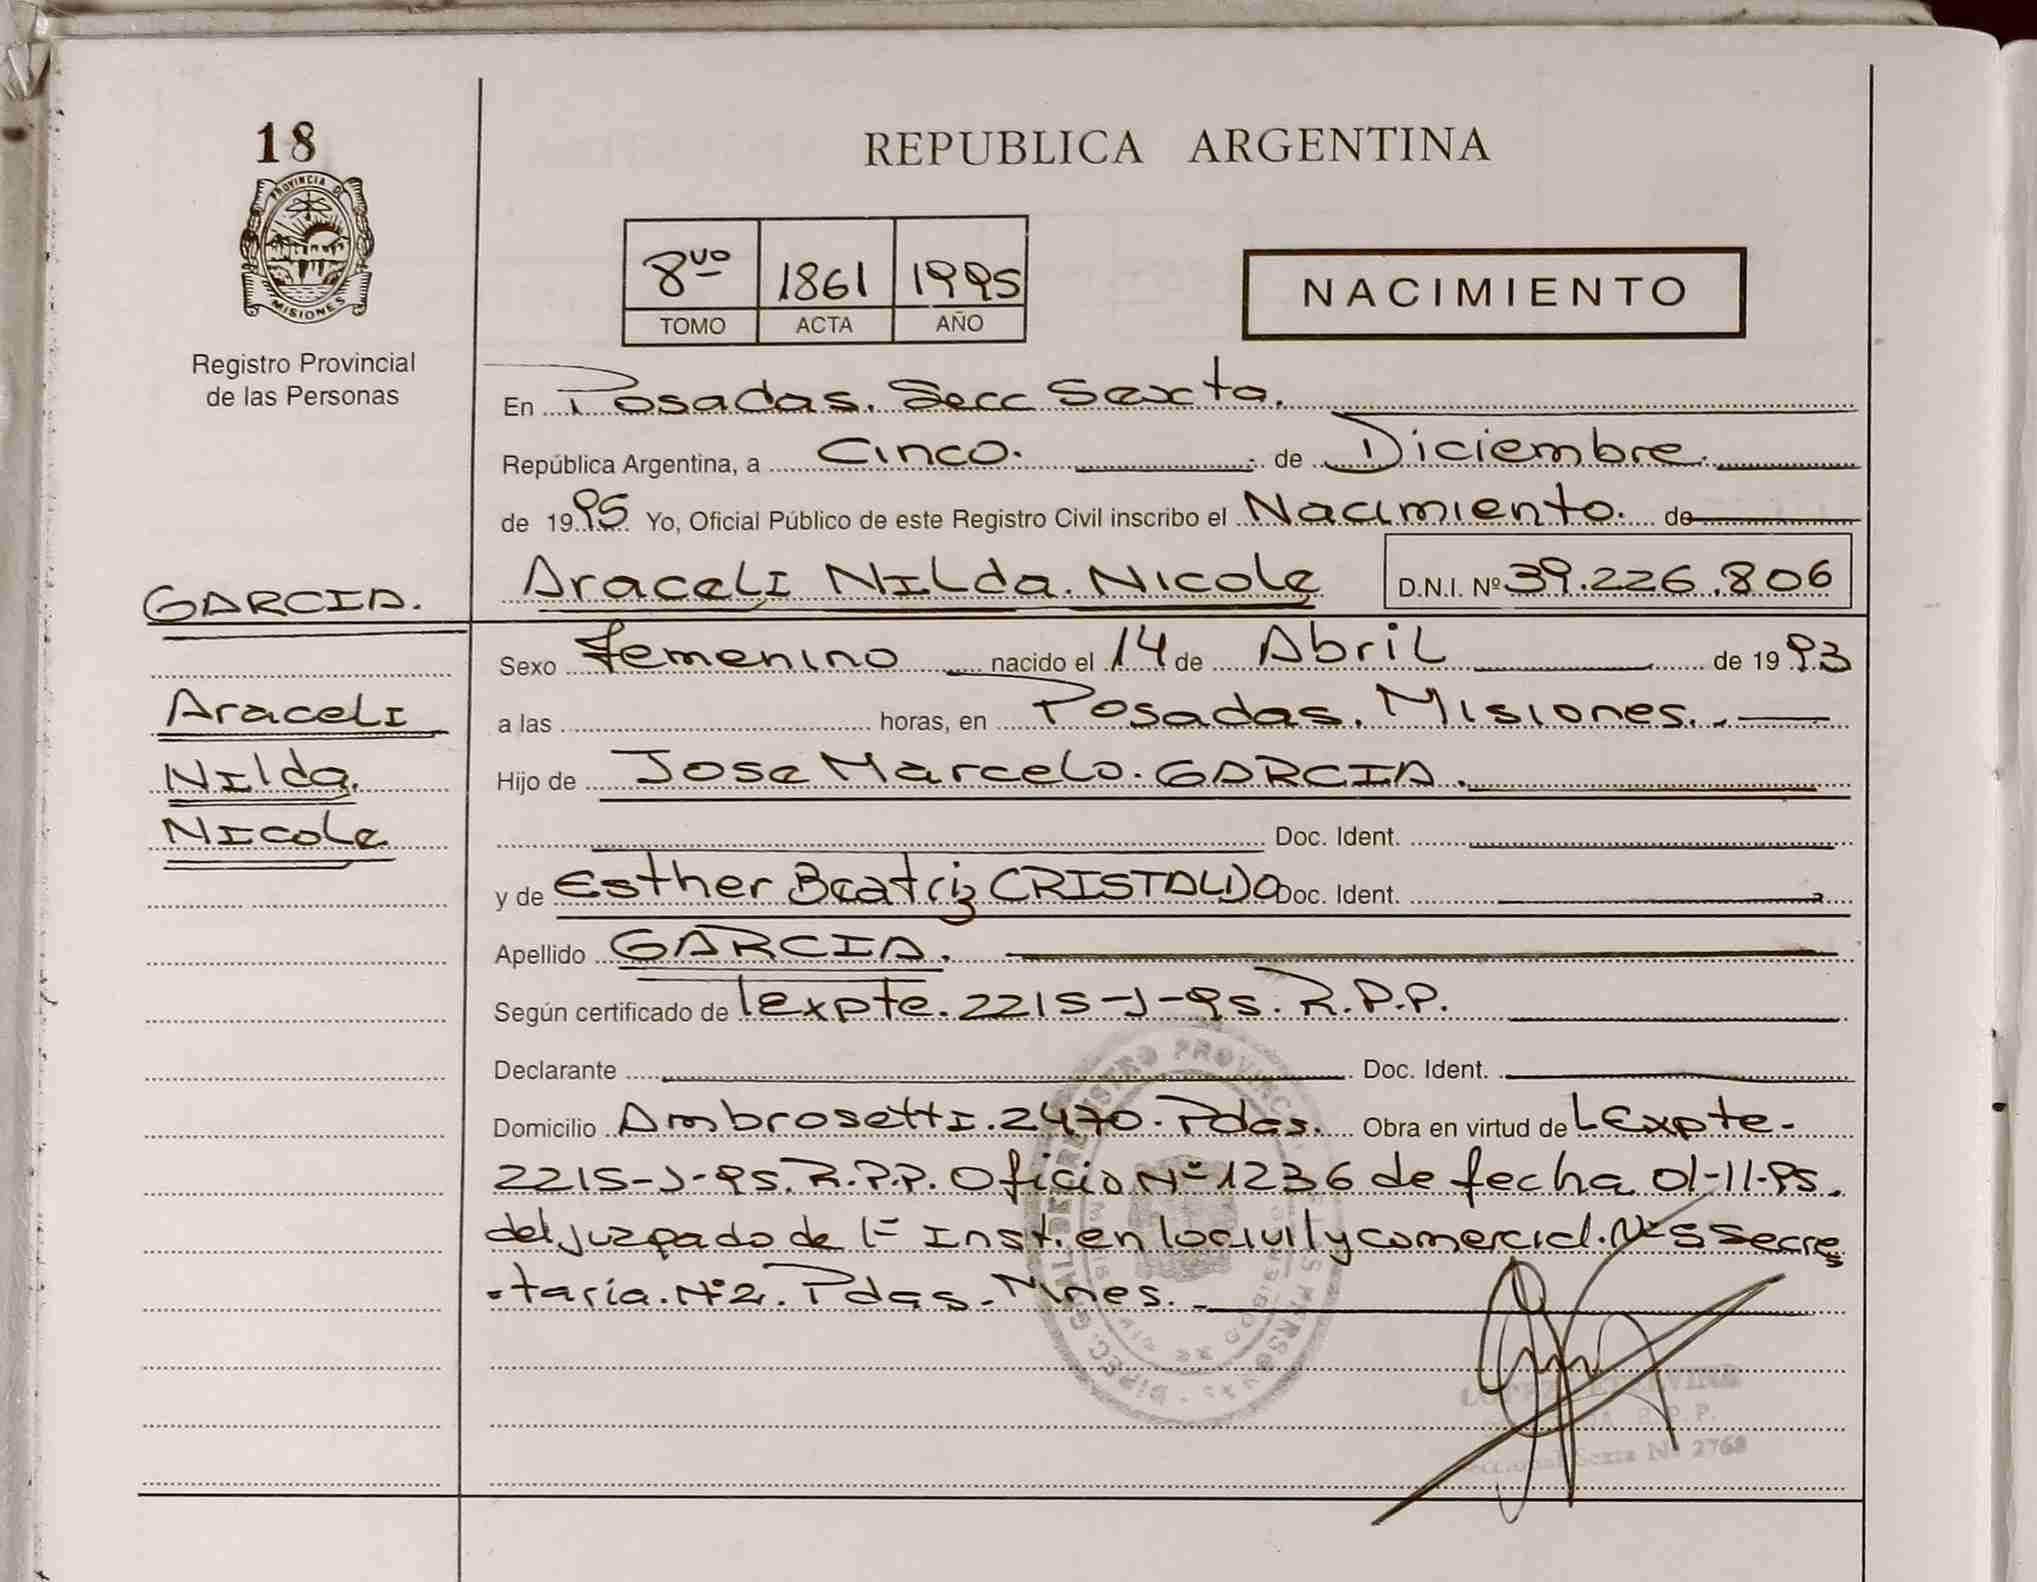 18
PROVINCIA D
MISIONES
Registro Provincial
de las Personas
REPUBLICA ARGENTINA
8vo 1861 1995
TOMO ACTA AÑO
NACIMIENTO
En Posadas. Secc Sexta.
República Argentina, a Cinco. de Diciembre.
de 1995 Yo, Oficial Público de este Registro Civil inscribo el Nacimiento. de
GARCIA.
Araceli Nilda. Nicole D.N.I. Nº 39.226.806
Sexo Femenino nacido el 14 de Abril de 1993
Araceli
a las horas, en Posadas. Misiones.
Nilda.
Hijo de Jose Marcelo. GARCIA.
Nicole
Doc. Ident.
y de Esther Beatriz CRISTALDO Doc. Ident.
Apellido GARCIA.
Según certificado de Expte. 2215-J-95. R.P.P.
Declarante Doc. Ident.
Domicilio Ambrosetti. 2470. Pdas. Obra en virtud de Expte.
2215-J-95. R.P.P. Oficio Nº 1236 de fecha 01-11-95.
del Juzgado de 1ª Inst. en lo civil y comercial. Nº 5 Secre
taria. Nº 2. Pdas. Mnes.
R.P.P.
Sexta Nº 2768